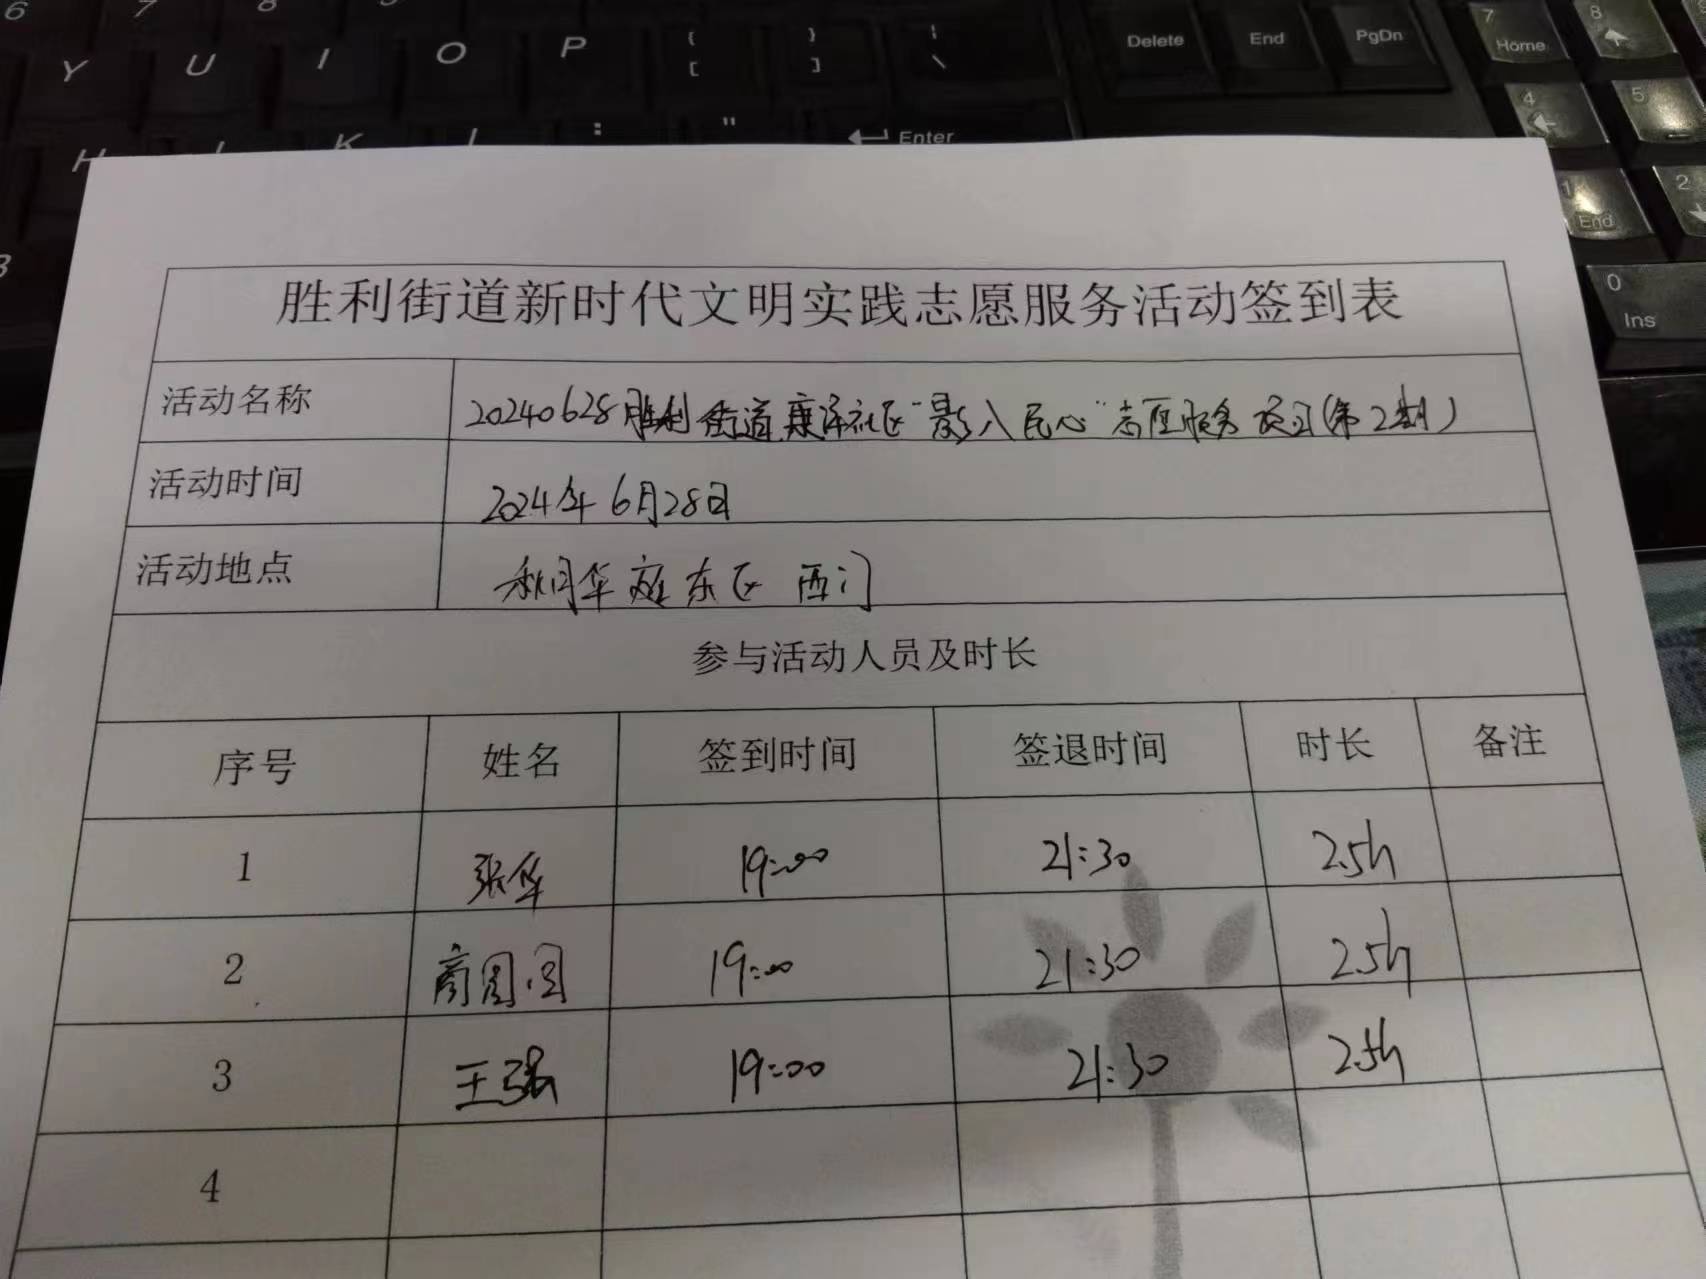 6 7 8 9
Y U I O P { [ } ] | \ Delete End PgDn 7 Home 8
H J K L : " Enter 4 5
1 End 2
0 Ins
胜利街道新时代文明实践志愿服务活动签到表
活动名称 20240628胜利街道康泽社区"影入民心"志愿服务项目(第2期)
活动时间 2024年6月28日
活动地点 秋月华庭东区西门
参与活动人员及时长
序号 姓名 签到时间 签退时间 时长 备注
1 张华 19:00 21:30 2.5h
2 商圆圆 19:00 21:30 2.5h
3 王强 19:00 21:30 2.5h
4